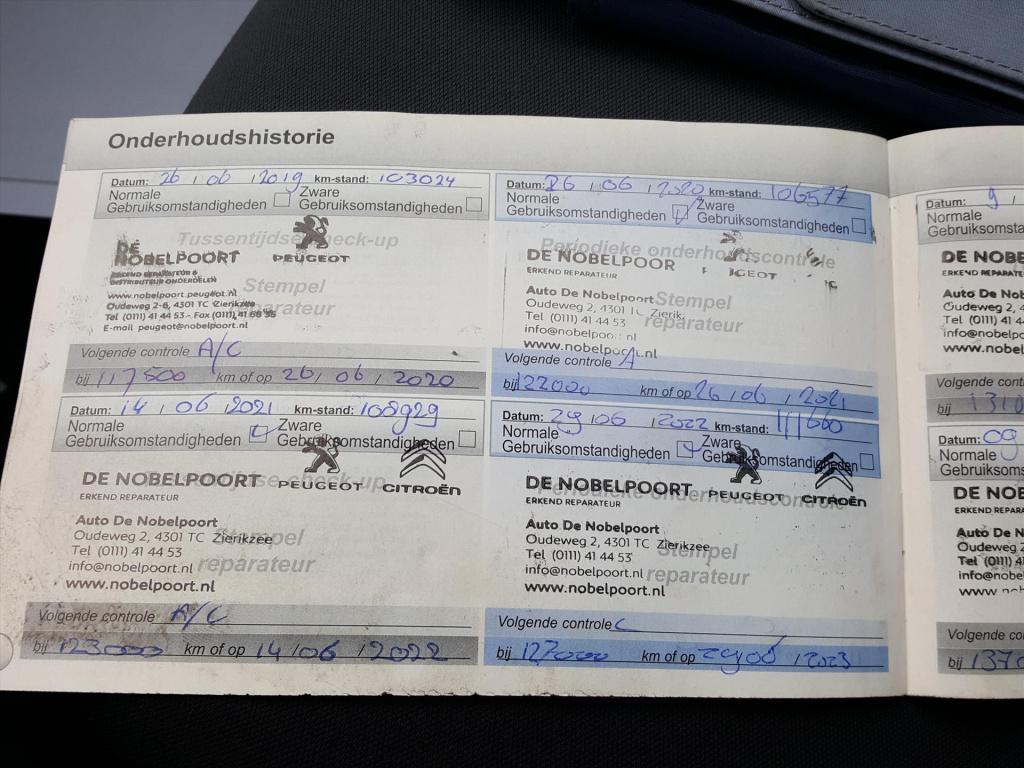 Onderhoudshistorie
Datum: 26 / 06 / 2019 km-stand: 103024
Normale Gebruiksomstandigheden Zware Gebruiksomstandigheden
Tussentijdse check-up
DE NOBELPOORT PEUGEOT
ERKEND REPARATEUR &
DISTRIBUTEUR ONDERDELEN
Stempel reparateur
www.nobelpoort.peugeot.nl
Oudeweg 2-6, 4301 TC Zierikzee
Tel (0111) 41 44 53 - Fax (0111) 41
E-mail peugeot@nobelpoort.nl
Volgende controle A/C
bij 117500 km of op 26 / 06 / 2020
Datum: 26 / 06 / 2020 km-stand: 106577
Normale Gebruiksomstandigheden Zware Gebruiksomstandigheden
Periodieke onderhoudscontrole
DE NOBELPOOR
ERKEND REPARATEUR
Auto De Nobelpoort
Stempel reparateur
Oudeweg 2, 4301 Zierik
Tel (0111) 41 44 53
info@nobelpoort.nl
www.nobelpoort.nl
Volgende controle A
bij 122000 km of op 26 / 06 / 2021
Datum: 14 / 06 / 2021 km-stand: 108929
Normale Gebruiksomstandigheden Zware Gebruiksomstandigheden
check-up
DE NOBELPOORT PEUGEOT CITROËN
ERKEND REPARATEUR
Auto De Nobelpoort
Oudeweg 2, 4301 TC Zierikzee
Stempel reparateur
Tel (0111) 41 44 53
info@nobelpoort.nl
www.nobelpoort.nl
Volgende controle A/C
bij 123000 km of op 14 / 06 / 2022
Datum: 29 / 06 / 2022 km-stand: 111660
Normale Gebruiksomstandigheden Zware Gebruiksomstandigheden
Periodieke onderhoudscontrole
DE NOBELPOORT PEUGEOT CITROËN
ERKEND REPARATEUR
Auto De Nobelpoort
Oudeweg 2, 4301 TC Zierikzee
Stempel reparateur
Tel (0111) 41 44 53
info@nobelpoort.nl
www.nobelpoort.nl
Volgende controle C
bij 127000 km of op 29 / 06 / 2023
Datum: 9 /
Normale
Gebruiksomsta
DE NOB
ERKEND REPARATE
Auto De Nob
Oudeweg 2,
Tel (0111) 4
info@nobelpo
www.nobel
Volgende contr
bij 1310
Datum: 09
Normale
Gebruiksoms
DE NOB
ERKEND REPAR
Auto De No
Oudeweg 2
Tel (0111) 41
info@nob
www
Volgende co
bij 1370